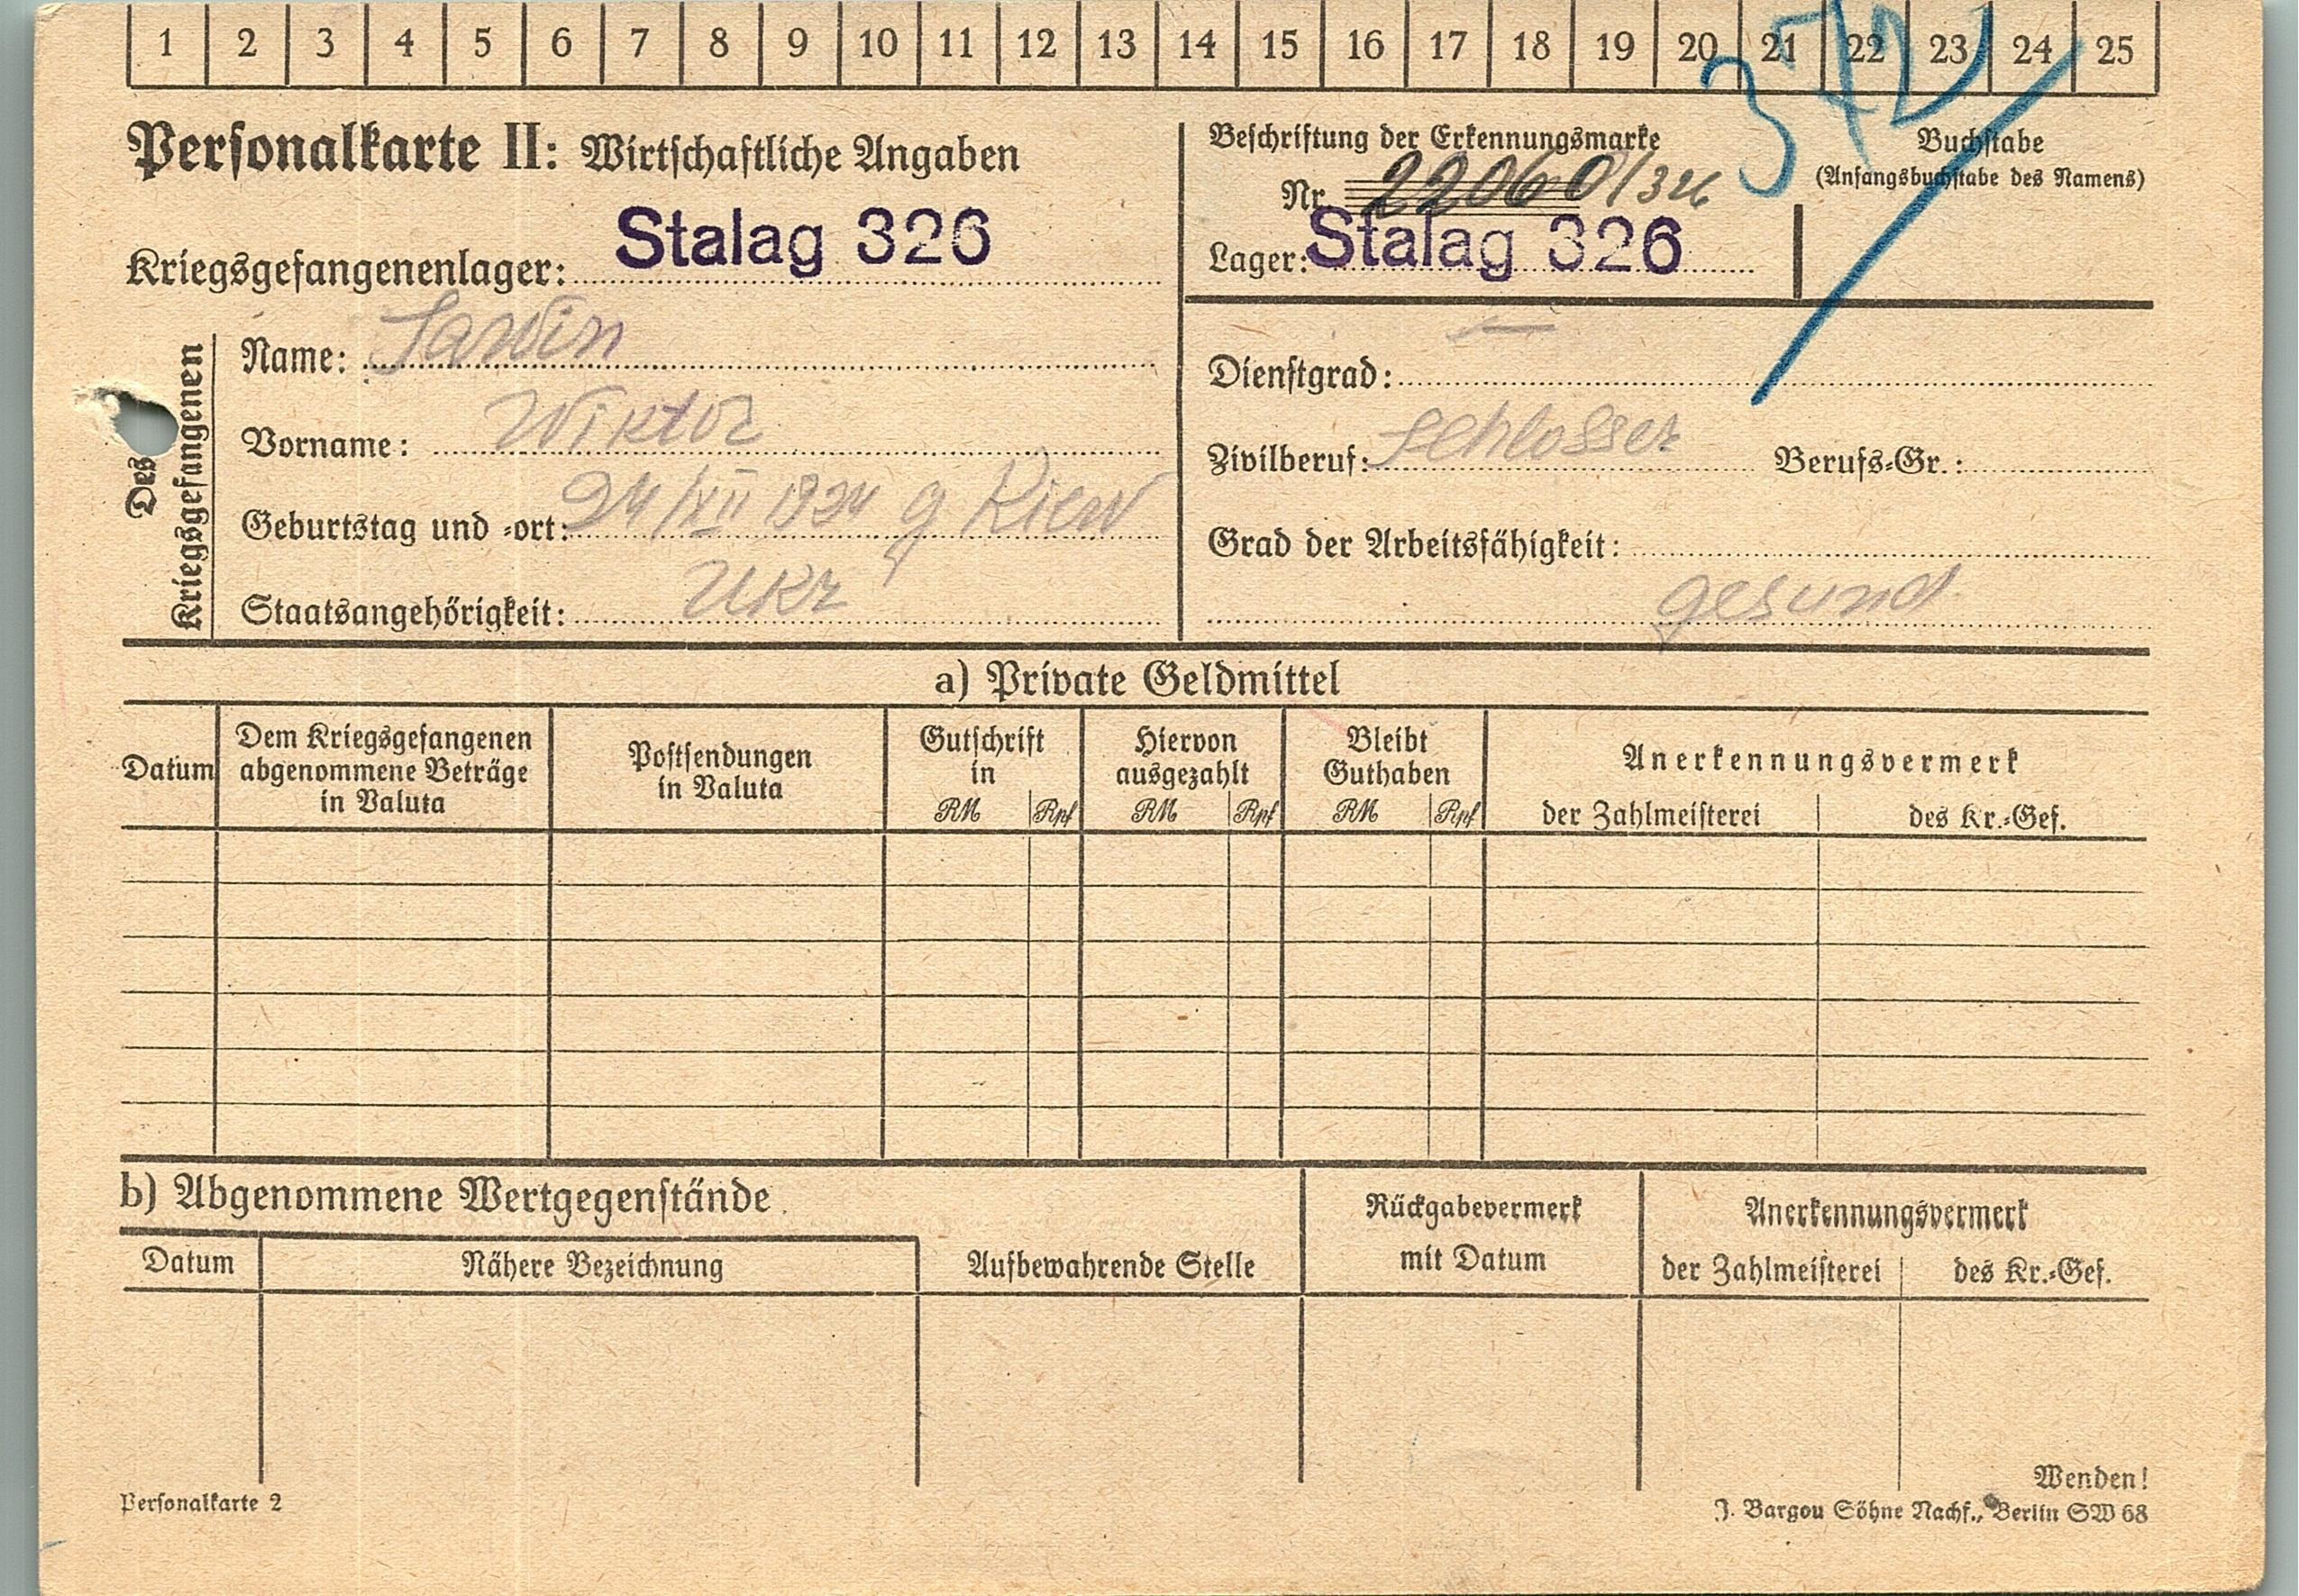 1 2 3 4 5 6 7 8 9 10 11 12 13 14 15 16 17 18 19 20 21 22 23 24 25
372
Personalkarte II: Wirtschaftliche Angaben
Kriegsgefangenenlager: Stalag 326
Beschriftung der Erkennungsmarke
Nr. 22060/326
Lager: Stalag 326
Buchstabe
(Anfangsbuchstabe des Namens)
Des Kriegsgefangenen
Name: Sawin
Vorname: Wiktor
Geburtstag und -ort: 24/XII 1924 g Kiew
Staatsangehörigkeit: Ukr
Dienstgrad: —
Zivilberuf: Schlosser Berufs-Gr.:
Grad der Arbeitsfähigkeit:
gesund
a) Private Geldmittel
Datum
Dem Kriegsgefangenen
abgenommene Beträge
in Valuta
Postsendungen
in Valuta
Gutschrift
in
RM Rpf
Hiervon
ausgezahlt
RM Rpf
Bleibt
Guthaben
RM Rpf
Anerkennungsvermerk
der Zahlmeisterei des Kr.-Gef.
b) Abgenommene Wertgegenstände
Datum Nähere Bezeichnung
Aufbewahrende Stelle
Rückgabevermerk
mit Datum
Anerkennungsvermerk
der Zahlmeisterei des Kr.-Gef.
Wenden!
Personalkarte 2
J. Bargou Söhne Nachf., Berlin SW 68